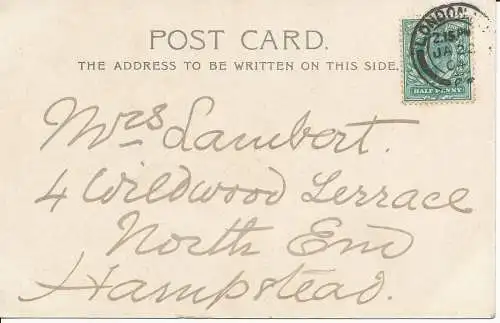 POST CARD.
THE ADDRESS TO BE WRITTEN ON THIS SIDE.
LONDON
2.15 PM
JA 22
04
HALF PENNY
Mrs Lambert.
4 Wildwood Terrace
North End
Hampstead.